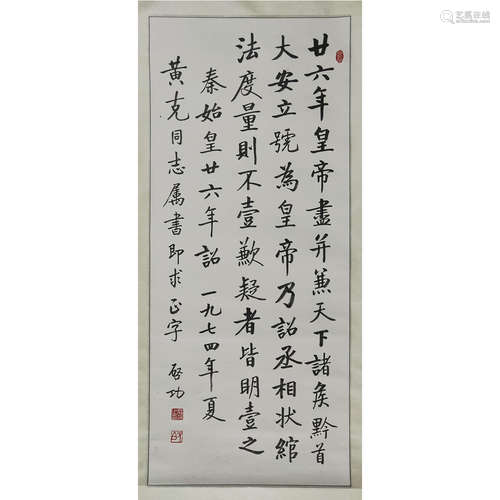 廿六年皇帝盡并兼天下諸矦黔首
大安立號為皇帝乃詔丞相狀綰
法度量則不壹歉疑者皆明壹之
秦始皇廿六年詔 一九七四年夏
黄克同志属書即求正字 啓功
艺典在线
yidianchina.com